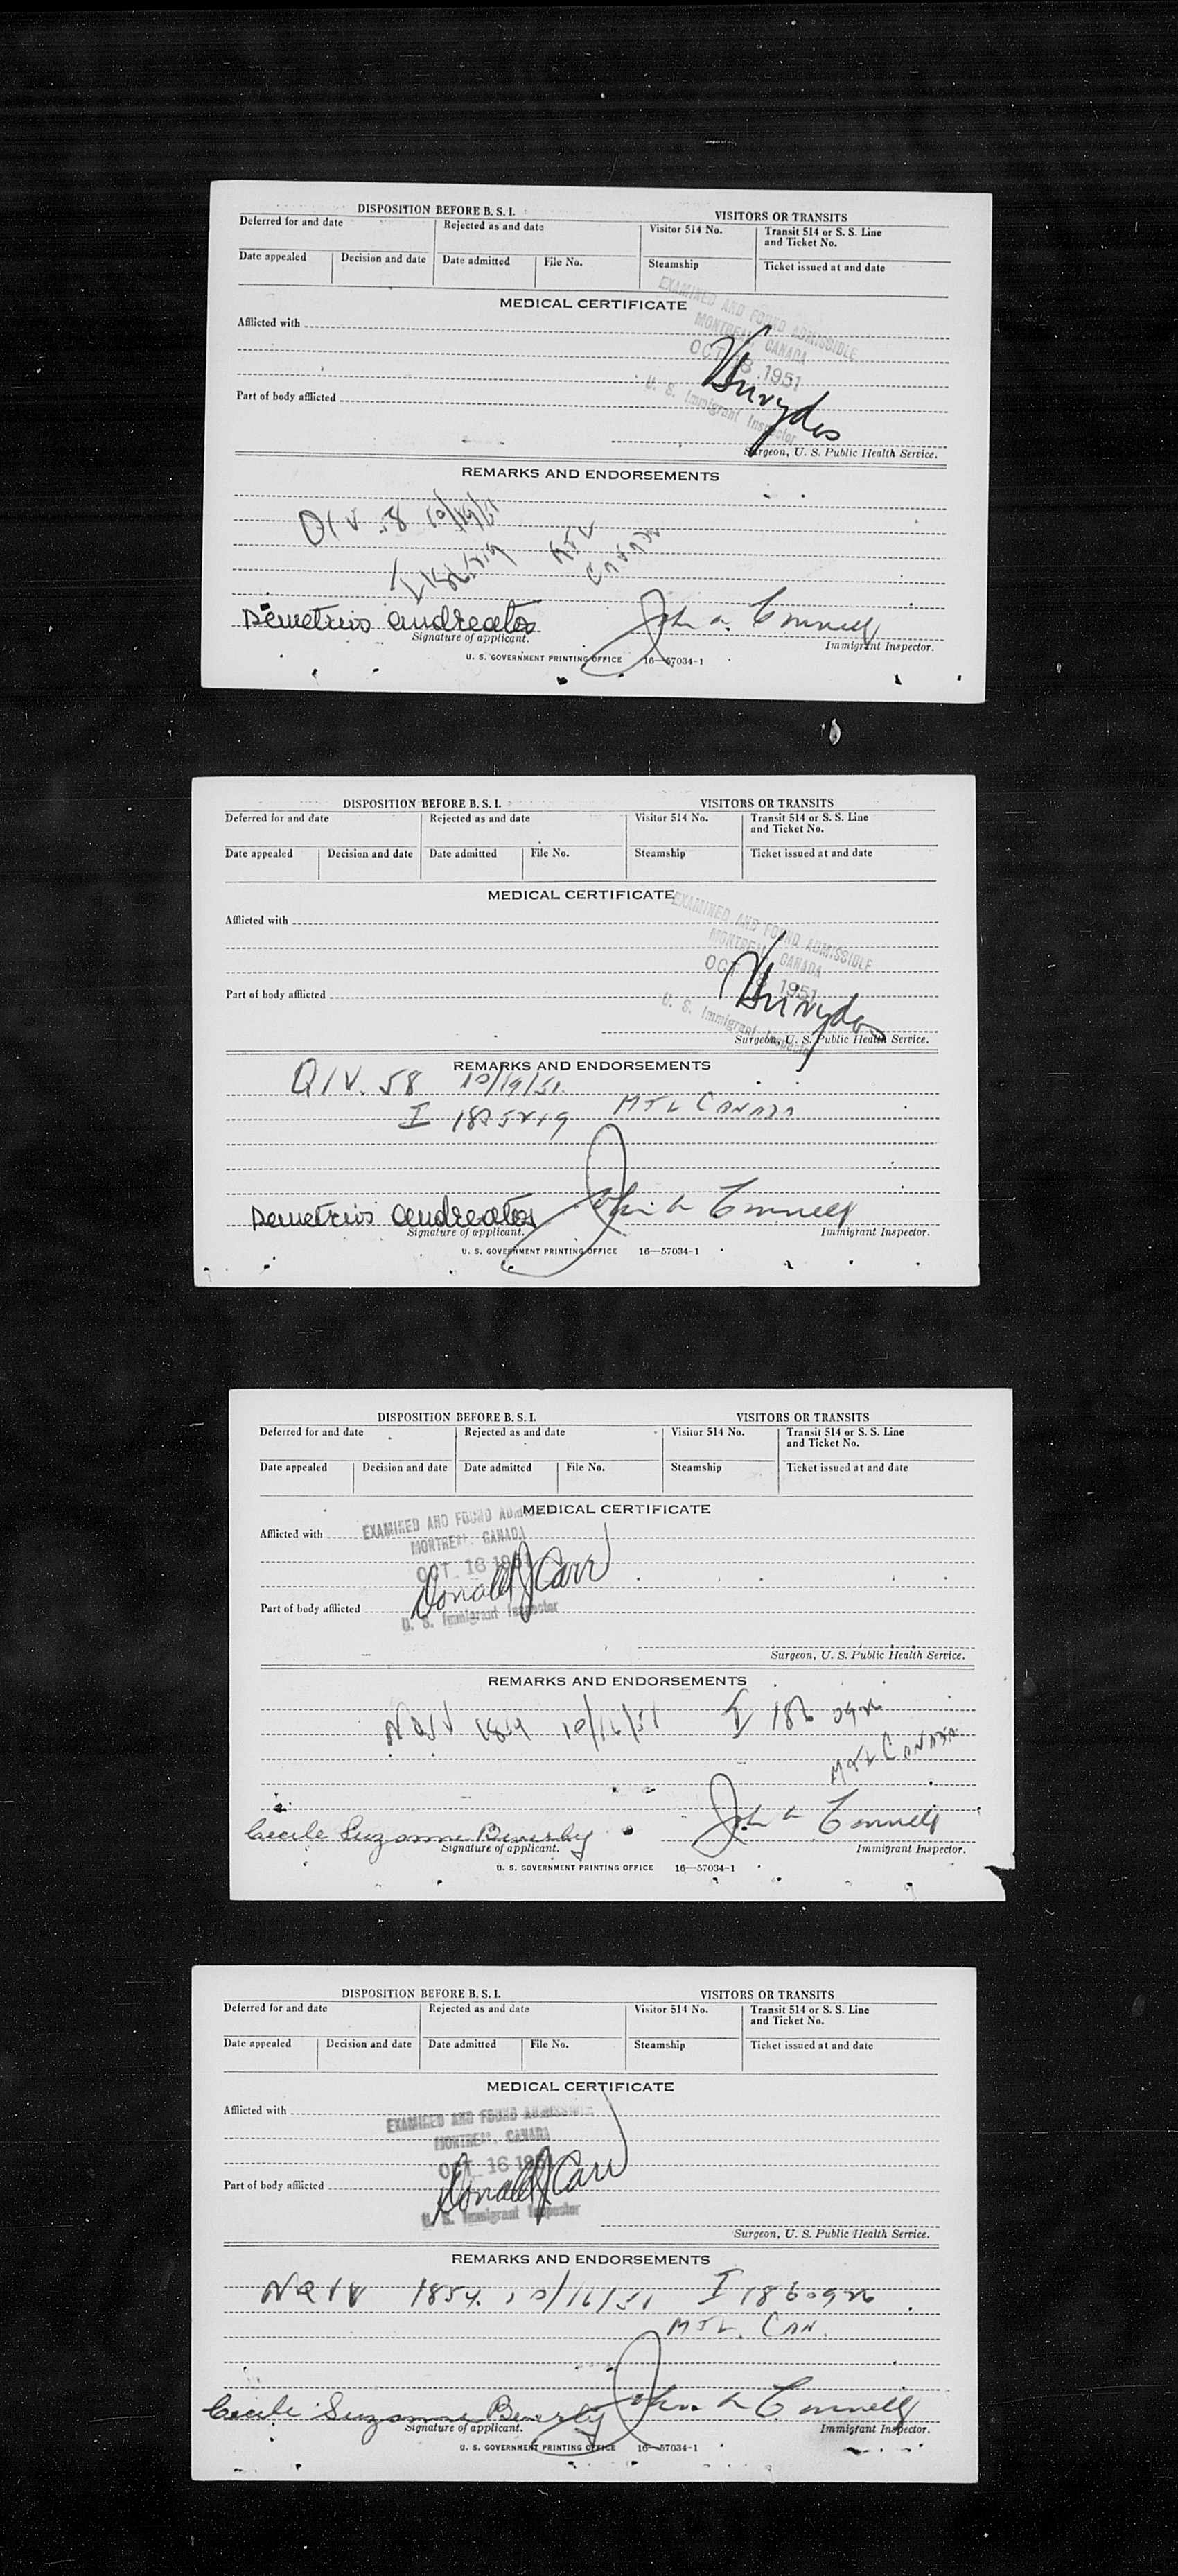 DISPOSITION BEFORE B. S. I. VISITORS OR TRANSITS
Deferred for and date Rejected as and date Visitor 514 No. Transit 514 or S. S. Line and Ticket No.
Date appealed Decision and date Date admitted File No. Steamship Ticket issued at and date
MEDICAL CERTIFICATE
Afflicted with
EXAMINED AND FOUND ADMISSIBLE
MONTREAL, CANADA
OCT 8 1951
U. S. Immigrant Inspector
Part of body afflicted
Surgeon, U. S. Public Health Service.
REMARKS AND ENDORSEMENTS
QIV 58 10/19/51
MTL
CANADA
Demetrios Andreatos John A. Connell
Signature of applicant. Immigrant Inspector.
U. S. GOVERNMENT PRINTING OFFICE 16—57034-1
DISPOSITION BEFORE B. S. I. VISITORS OR TRANSITS
Deferred for and date Rejected as and date Visitor 514 No. Transit 514 or S. S. Line and Ticket No.
Date appealed Decision and date Date admitted File No. Steamship Ticket issued at and date
MEDICAL CERTIFICATE
Afflicted with
EXAMINED AND FOUND ADMISSIBLE
MONTREAL, CANADA
OCT 1951
U. S. Immigrant Inspector
Part of body afflicted
Surgeon, U. S. Public Health Service.
REMARKS AND ENDORSEMENTS
QIV. 58 10/19/51.
I MTL CANADA
Demetrios Andreatos John A Connell
Signature of applicant. Immigrant Inspector.
U. S. GOVERNMENT PRINTING OFFICE 16—57034-1
DISPOSITION BEFORE B. S. I. VISITORS OR TRANSITS
Deferred for and date Rejected as and date Visitor 514 No. Transit 514 or S. S. Line and Ticket No.
Date appealed Decision and date Date admitted File No. Steamship Ticket issued at and date
MEDICAL CERTIFICATE
Afflicted with
EXAMINED AND FOUND ADMISSIBLE
MONTREAL, CANADA
OCT 16 1951
Donald J Carr
U. S. Immigrant Inspector
Part of body afflicted
Surgeon, U. S. Public Health Service.
REMARKS AND ENDORSEMENTS
NQIV 1854 10/16/51 I 186 0926
MTL CANADA
Cecile Suzanne Beverly John A Connell
Signature of applicant. Immigrant Inspector.
U. S. GOVERNMENT PRINTING OFFICE 16—57034-1
DISPOSITION BEFORE B. S. I. VISITORS OR TRANSITS
Deferred for and date Rejected as and date Visitor 514 No. Transit 514 or S. S. Line and Ticket No.
Date appealed Decision and date Date admitted File No. Steamship Ticket issued at and date
MEDICAL CERTIFICATE
Afflicted with
EXAMINED AND FOUND ADMISSIBLE
MONTREAL, CANADA
OCT 16 1951
Donald J Carr
U. S. Immigrant Inspector
Part of body afflicted
Surgeon, U. S. Public Health Service.
REMARKS AND ENDORSEMENTS
NQIV 1854. 10/16/51 I 1860926
MTL. CAN.
Cecile Suzanne Beverly John A Connell
Signature of applicant. Immigrant Inspector.
U. S. GOVERNMENT PRINTING OFFICE 16—57034-1